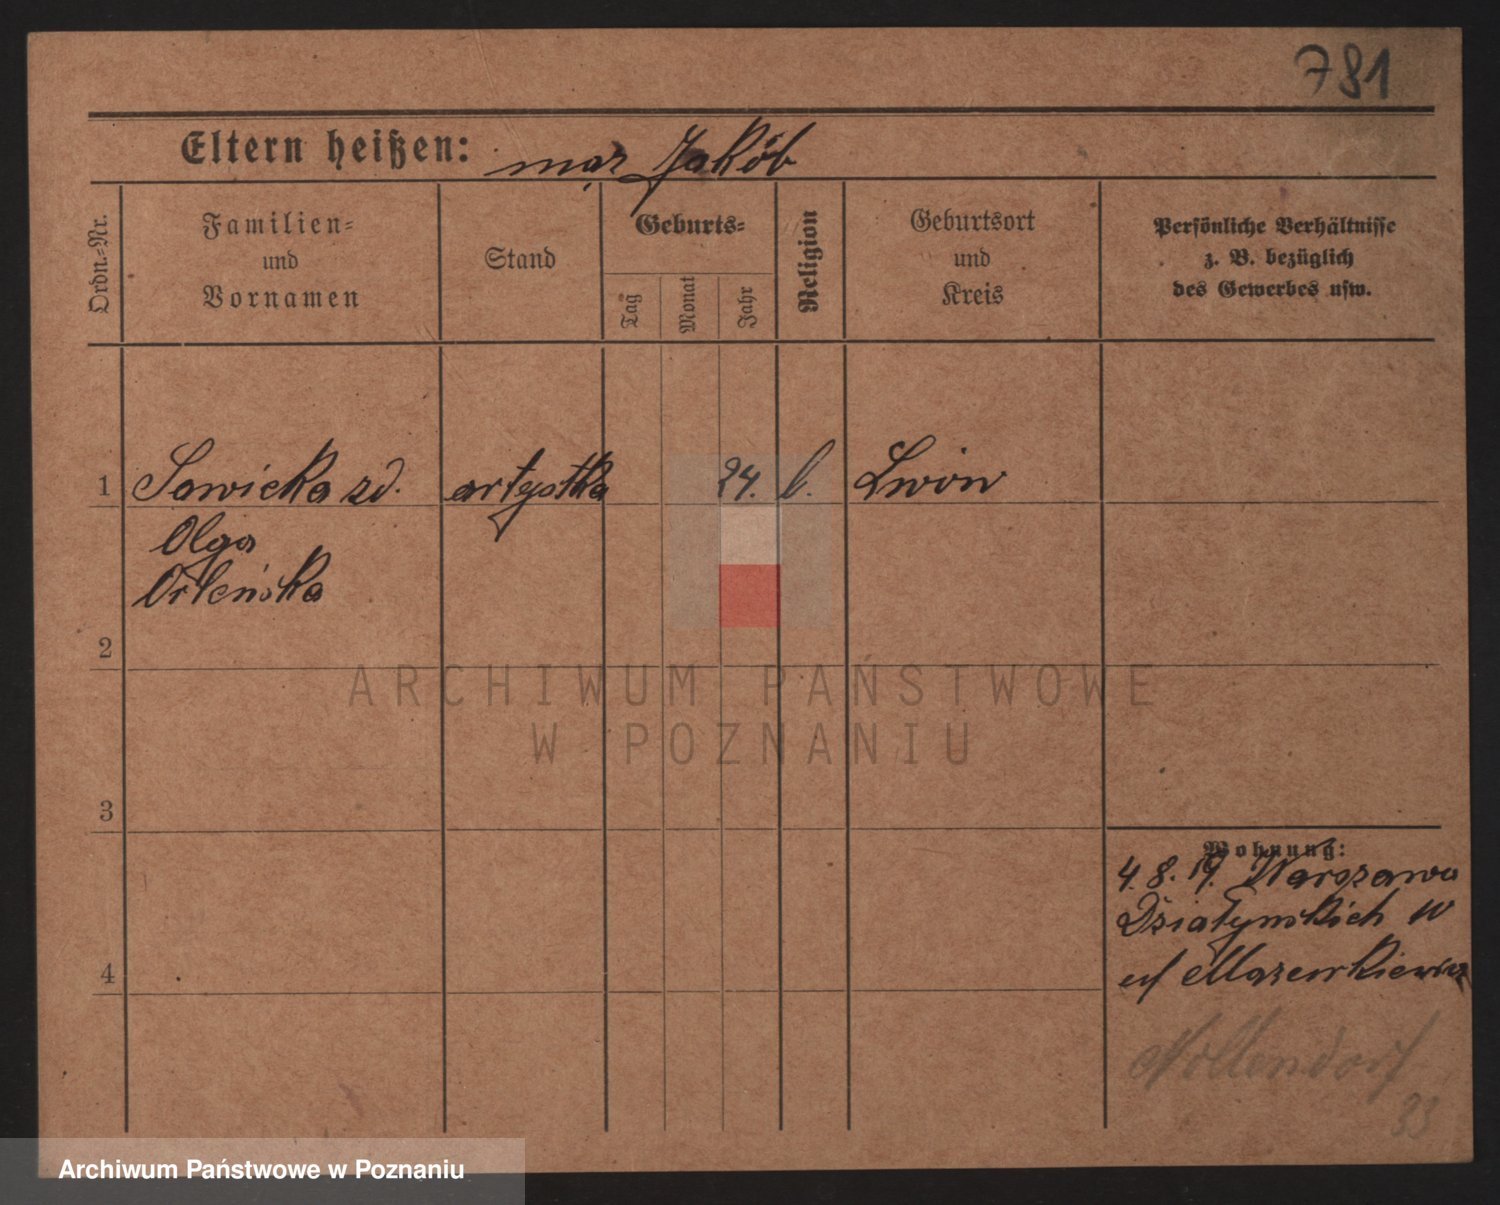 781
Eltern heißen: mąż Jakób
Ordn.=Nr.
Familien=
und
Vornamen
Stand
Geburts=
Tag
Monat
Jahr
Religion
Geburtsort
und
Kreis
Persönliche Verhältnisse
z. B. bezüglich
des Gewerbes usw.
1 Sawicka zd. artystka 24. Lwów
Olga
Orleńska
2
ARCHIWUM PAŃSTWOWE
W POZNANIU
3
Wohnung:
4. 8. 19. Warszawa
Działyńskich
4
Mazurkiewicz
Nollendorf
33
Archiwum Państwowe w Poznaniu